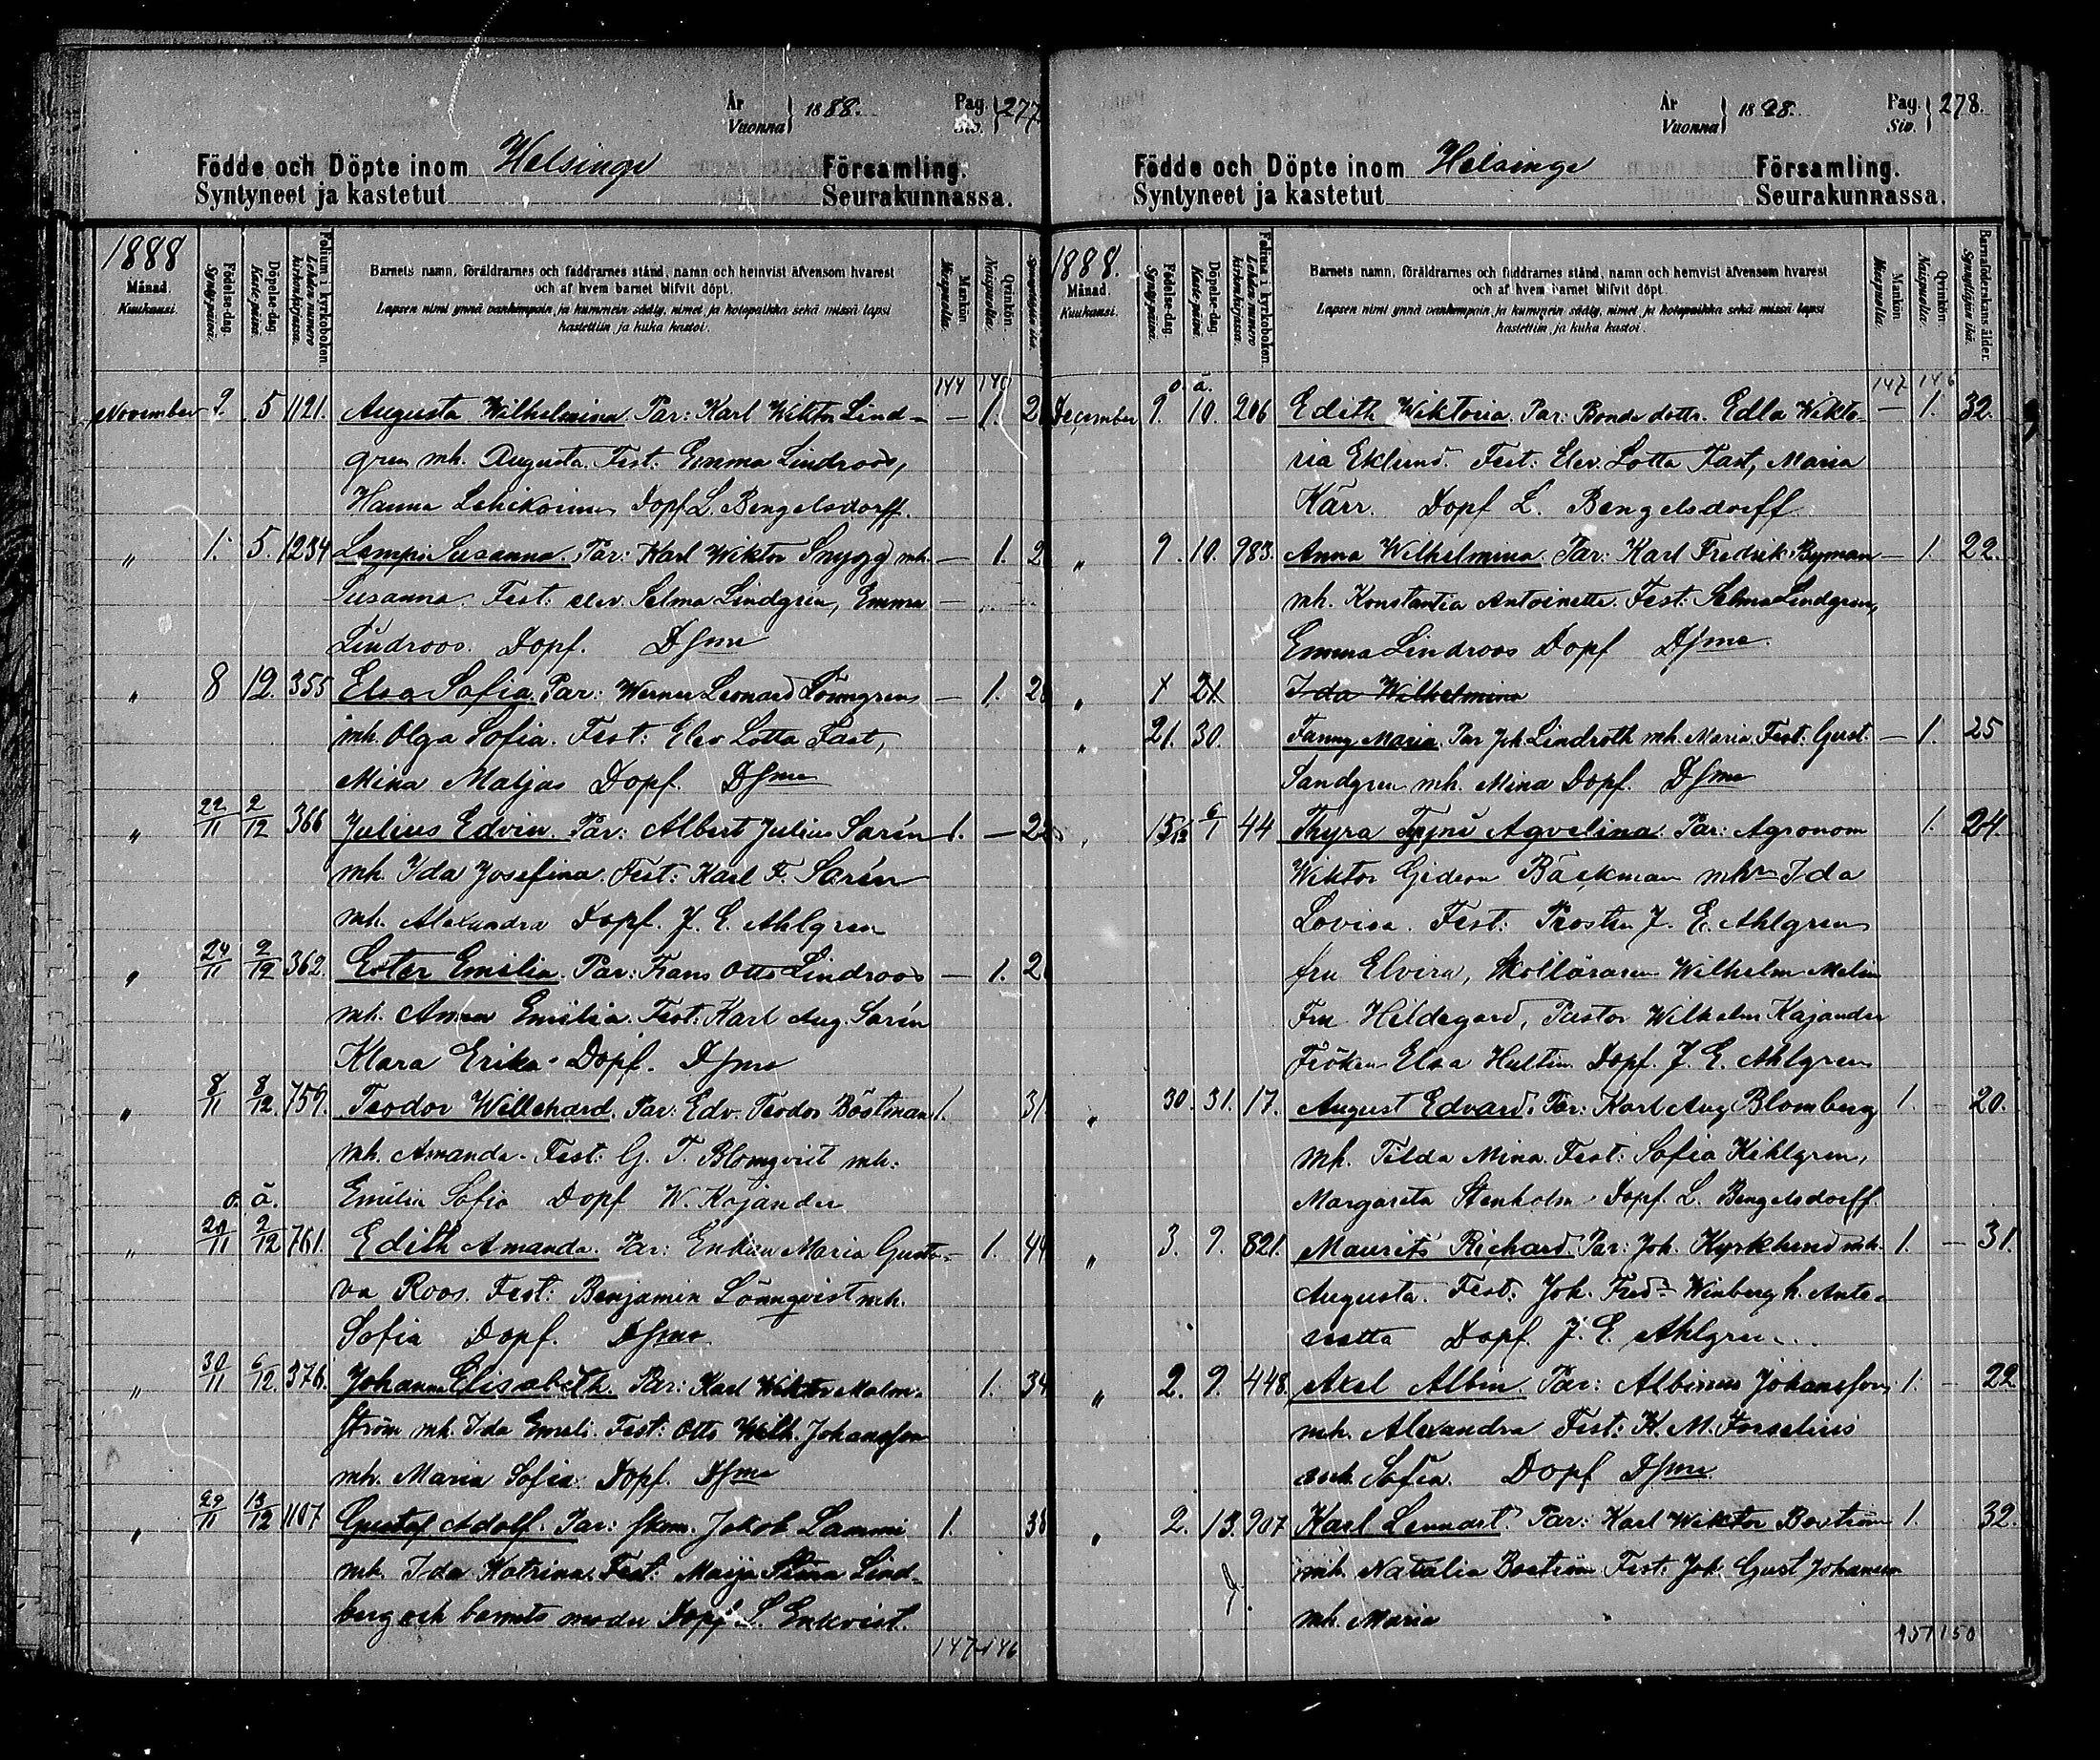 År 1888. Pag. 277
Vuonna Siv.
Födde och Döpte inom Helsinge Församling.
Syntyneet ja kastetut Seurakunnassa.
1888
Månad.
Kuukausi.
Födelse-dag.
Syntypäivä.
Döpelse-dag.
Kastepäivä.
Folium i kyrkoboken.
Lehden numero kirkonkirjassa.
Barnets namn, föräldrarnes och faddrarnes stånd, namn och hemvist äfvensom hvarest
och af hvem barnet blifvit döpt.
Lapsen nimi ynnä vanhempain ja kummein sääty, nimet ja kotopaikka sekä missä lapsi
kastettiin ja kuka kastoi.
Mankön.
Miespuolia.
Qvinkön.
Naispuolia.
144 140
November 2. 5 1121. Augusta Wilhelmina Par: Karl Wiktor Lind- — 1. 2
gren mh. Augusta. Fest: Emma Lindroos,
Hanna Lehikoinen Döpf. L. Bengelsdorff.
" 1. 5. 1234 Lempi Susanna. Par: Karl Wiktor Snygg mh. — 1. 2
Susanna. Fest: elev. Selma Lindgren, Emma
Lindroos. Döpf. Dsme
" 8 12. 355 Elsa Sofia. Par: Werner Leonard Lönngren — 1. 2
mh. Olga Sofia. Fest: Elev Lotta Fast,
Mina Matjas Döpf. Dsme
" 22/11 2/12 366 Julius Edvin. Par: Albert Julius Sarén 1. — 22
mh. Ida Josefina. Fest: Karl F. Sarén
mh. Alexandra Döpf. J. E. Ahlgren
" 24/11 2/12 362. Ester Emilia. Par: Frans Otto Lindroos — 1. 2
mh. Anna Emilia. Fest: Karl Aug. Sarén
Klara Erika. Döpf. Dsme
" 8/11 8/12. 759. Teodor Willehard. Par: Edv. Teodor Böstman 1. 31
mh. Amanda. Fest: G. T. Blomqvist mh.
o. ä. Emilia Sofia Döpf W. Kajander
" 2/12 761. Edith Amanda. Par: Enkan Maria Gusta- — 1. 44
va Roos. Fest: Benjamin Lönnqvist mh.
Sofia Döpf. Dsme
" 30/11 6/12. 376. Johanna Elisabeth. Par: Karl Wiktor Malm- 1. 34
ström mh. Ida Emeli. Fest: Otto Wilh. Johansson
mh. Maria Sofia. Döpf. Dsme
" 29/11 13/12 1107 Gustaf Adolf. Par: skom. Jakob Lammi 1. 38
mh. Ida Katrina. Fest: Maija Stina Lind-
berg och barnets moder Döpf S. Enkvist.
147 146
År 1888. Pag. 278.
Vuonna Siv.
Födde och Döpte inom Helsinge Församling.
Syntyneet ja kastetut Seurakunnassa.
1888.
Månad.
Kuukausi.
Födelse-dag.
Syntypäivä.
Döpelse-dag.
Kastepäivä.
Folium i kyrkoboken.
Lehden numero kirkonkirjassa.
Barnets namn, föräldrarnes och faddrarnes stånd, namn och hemvist äfvensom hvarest
och af hvem barnet blifvit döpt.
Lapsen nimi ynnä vanhempain ja kummein sääty, nimet ja kotopaikka sekä missä lapsi
kastettiin ja kuka kastoi.
Mankön.
Miespuolia.
Qvinkön.
Naispuolia.
Barnaföderskans ålder.
Synnyttäjän ikä.
o. ä. 147 146
December 9. 10. 206 Edith Wiktoria. Par: Bonde dottr. Edla Wikto- — 1. 32.
ria Eklund. Fest: Elev. Lotta Fast, Maria
Kärr. Döpf L. Bengelsdorff
" 9. 10. 983. Anna Wilhelmina. Par: Karl Fredrik Byman — 1. 22.
mh. Konstantia Antoinette. Fest: Selma Lindgren,
Emma Lindroos Döpf Dsme.
" 1 21. Ida Wilhelmina
" 21. 30. Fanny Maria. Par Joh. Lindroth mh. Maria. Fest: Gust. — 1. 25
Sandgren mh. Mina Döpf. Dsme
" 15/12 6/1 44 Thyra Tyyni Agvelina. Par: Agronom 1. 24.
Wiktor Gideon Bäckman mhn Ida
Lovisa. Fest: Prosten J. E. Ahlgren
fru Elvira, Skolläraren Wilhelm Malin
Fru Hildegard, Pastor Wilhelm Kajander
Fröken Elsa Hultin Döpf. J. E. Ahlgren
" 30. 31. 17. August Edvard. Par: Karl Aug. Blomberg 1. — 20.
mh. Tilda Mina. Fest: Sofia Kihlgren,
Margareta Stenholm. Döpf. L. Bengelsdorff.
" 3. 9. 821. Maurits Richard. Par: Joh. Kyrklund mh. 1. — 31.
Augusta. Fest: Joh. Fred. Winberg h. Anto-
inetta Döpf. J. E. Ahlgren.
" 2. 9. 448. Axel Albin. Par: Albinus Johansson 1. — 22
mh. Alexandra Fest: K. M. Forselius
och Sofia. Döpf Dsme
" 2. 13. 907 Karl Lennart. Par: Karl Wiktor Boström 1. 32.
mh. Natalia Boström Fest: Joh. Gust Johansson
mh. Maria
151 150